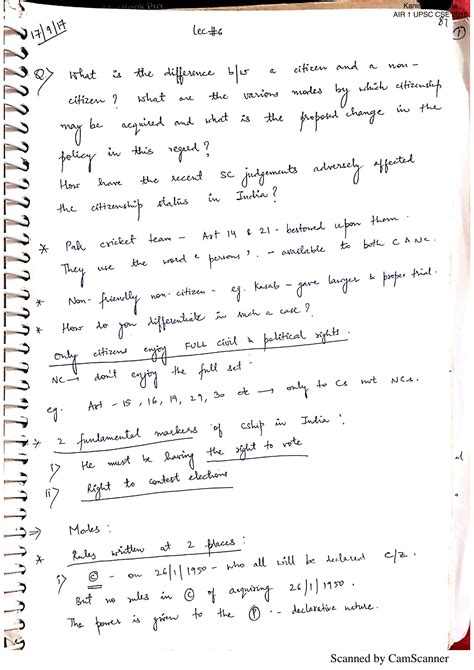 Book Pro
Kanis
AIR 1 UPSC CSE 2018
17/9/17
Lec #6
81
①
Q) What is the difference b/w a citizen and a non-
citizen? What are the various modes by which citizenship
may be acquired and what is the proposed change in the
policy in this regard?
How have the recent SC judgements adversely affected
the citizenship status in India?
* Pak cricket team - Art 14 & 21 - bestowed upon them.
They use the word 'persons'. - available to both C & NC.
* Non-friendly non-citizen - eg. Kasab - gave lawyer & proper trial.
* How do you differentiate in such a case?
Only citizens enjoy FULL civil & political rights.
NC → don't enjoy the full set.
eg. Art - 15, 16, 19, 29, 30 etc → only to Cs not NCs.
* 2 fundamental markers of Cship in India:
i) He must be having the right to vote
ii) Right to contest elections
⇒ Modes:
* Rules written at 2 places:
i) © - on 26/1/1950 - who all will be declared C/Z.
But no rules in © of acquiring 26/1/1950.
The power is given to the Ⓟ - declarative nature.
Scanned by CamScanner